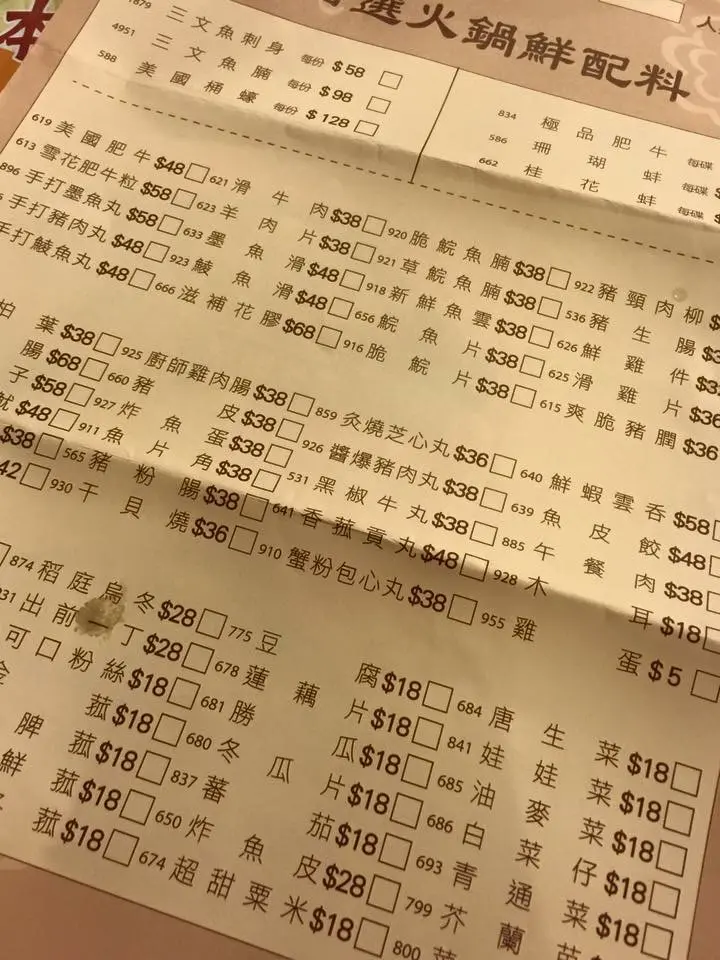 選火鍋鮮配料
三文魚刺身 每份 $58
4951 三文魚腩 每份 $98
588 美國桶蠔 每份 $128
834 極品肥牛 每碟
586 珊瑚蚌 每碟
662 桂花蚌 每碟
619 美國肥牛 $48 621 滑牛肉 $38 920 脆鯇魚腩 $38 922 豬頸肉柳
613 雪花肥牛粒 $58 623 羊肉片 $38 921 草鯇魚腩 $38 536 豬生腸
896 手打墨魚丸 $58 633 墨魚滑 $48 918 新鮮魚雲 $38 626 鮮雞件
手打豬肉丸 $48 923 鯪魚滑 $48 656 鯇魚片 $38 625 滑雞片 $36
手打鯪魚丸 $48 666 滋補花膠 $68 916 脆鯇片 $38 615 爽脆豬膶 $36
葉 $38 925 廚師雞肉腸 $38 859 灸燒芝心丸 $36 640 鮮蝦雲吞 $58
腸 $68 660 豬皮 $38 926 醬爆豬肉丸 $38 639 魚皮餃 $48
子 $58 927 炸魚蛋 $38 531 黑椒牛丸 $38 885 午餐肉 $38
$48 911 魚片角 $38 641 香菰貢丸 $48 928 木耳 $18
$38 565 豬粉腸 $38 910 蟹粉包心丸 $38 955 雞蛋 $5
42 930 干貝燒 $36
874 稻庭烏冬 $28 775 豆腐 $18 684 唐生菜 $18
931 出前一丁 $28 678 蓮藕片 $18 841 娃娃菜 $18
可口粉絲 $18 681 勝瓜 $18 685 油麥菜 $18
菰 $18 680 冬瓜片 $18 686 白菜仔 $18
脾菰 $18 837 蕃茄 $18 693 青通菜 $18
鮮菰 $18 650 炸魚皮 $28 799 芥蘭
菰 $18 674 超甜粟米 $18 800